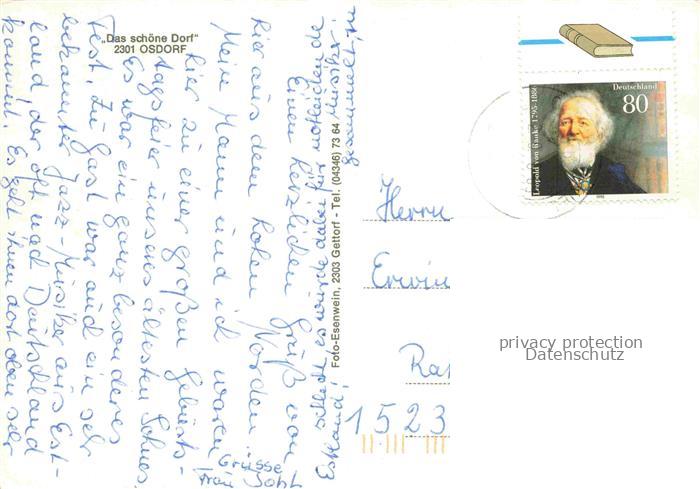 „Das schöne Dorf"
2301 OSDORF
Einen herzlichen Gruß von
hier aus dem hohen Norden.
Mein Mann und ich waren
hier zu einer großen Geburts-
tagsfeier unseres ältesten Sohnes.
Es war ein ganz besonderes
Fest. Zu Gast war auch ein sehr
bekannter Jazz-Musiker aus Est-
land, der oft nach Deutschland
kommt. Es geht ihnen dort oben sehr
schlecht, es wurde dabei für notleidende
Musiker
gesammelt in
Estland!
Grüsse
Frau
Foto-Esenwein, 2303 Gettorf - Tel.: (04346) 73 64
Deutschland
80
Leopold von Ranke 1795-1886
Herrn
Erwin
Ra
1523
privacy protection
Datenschutz